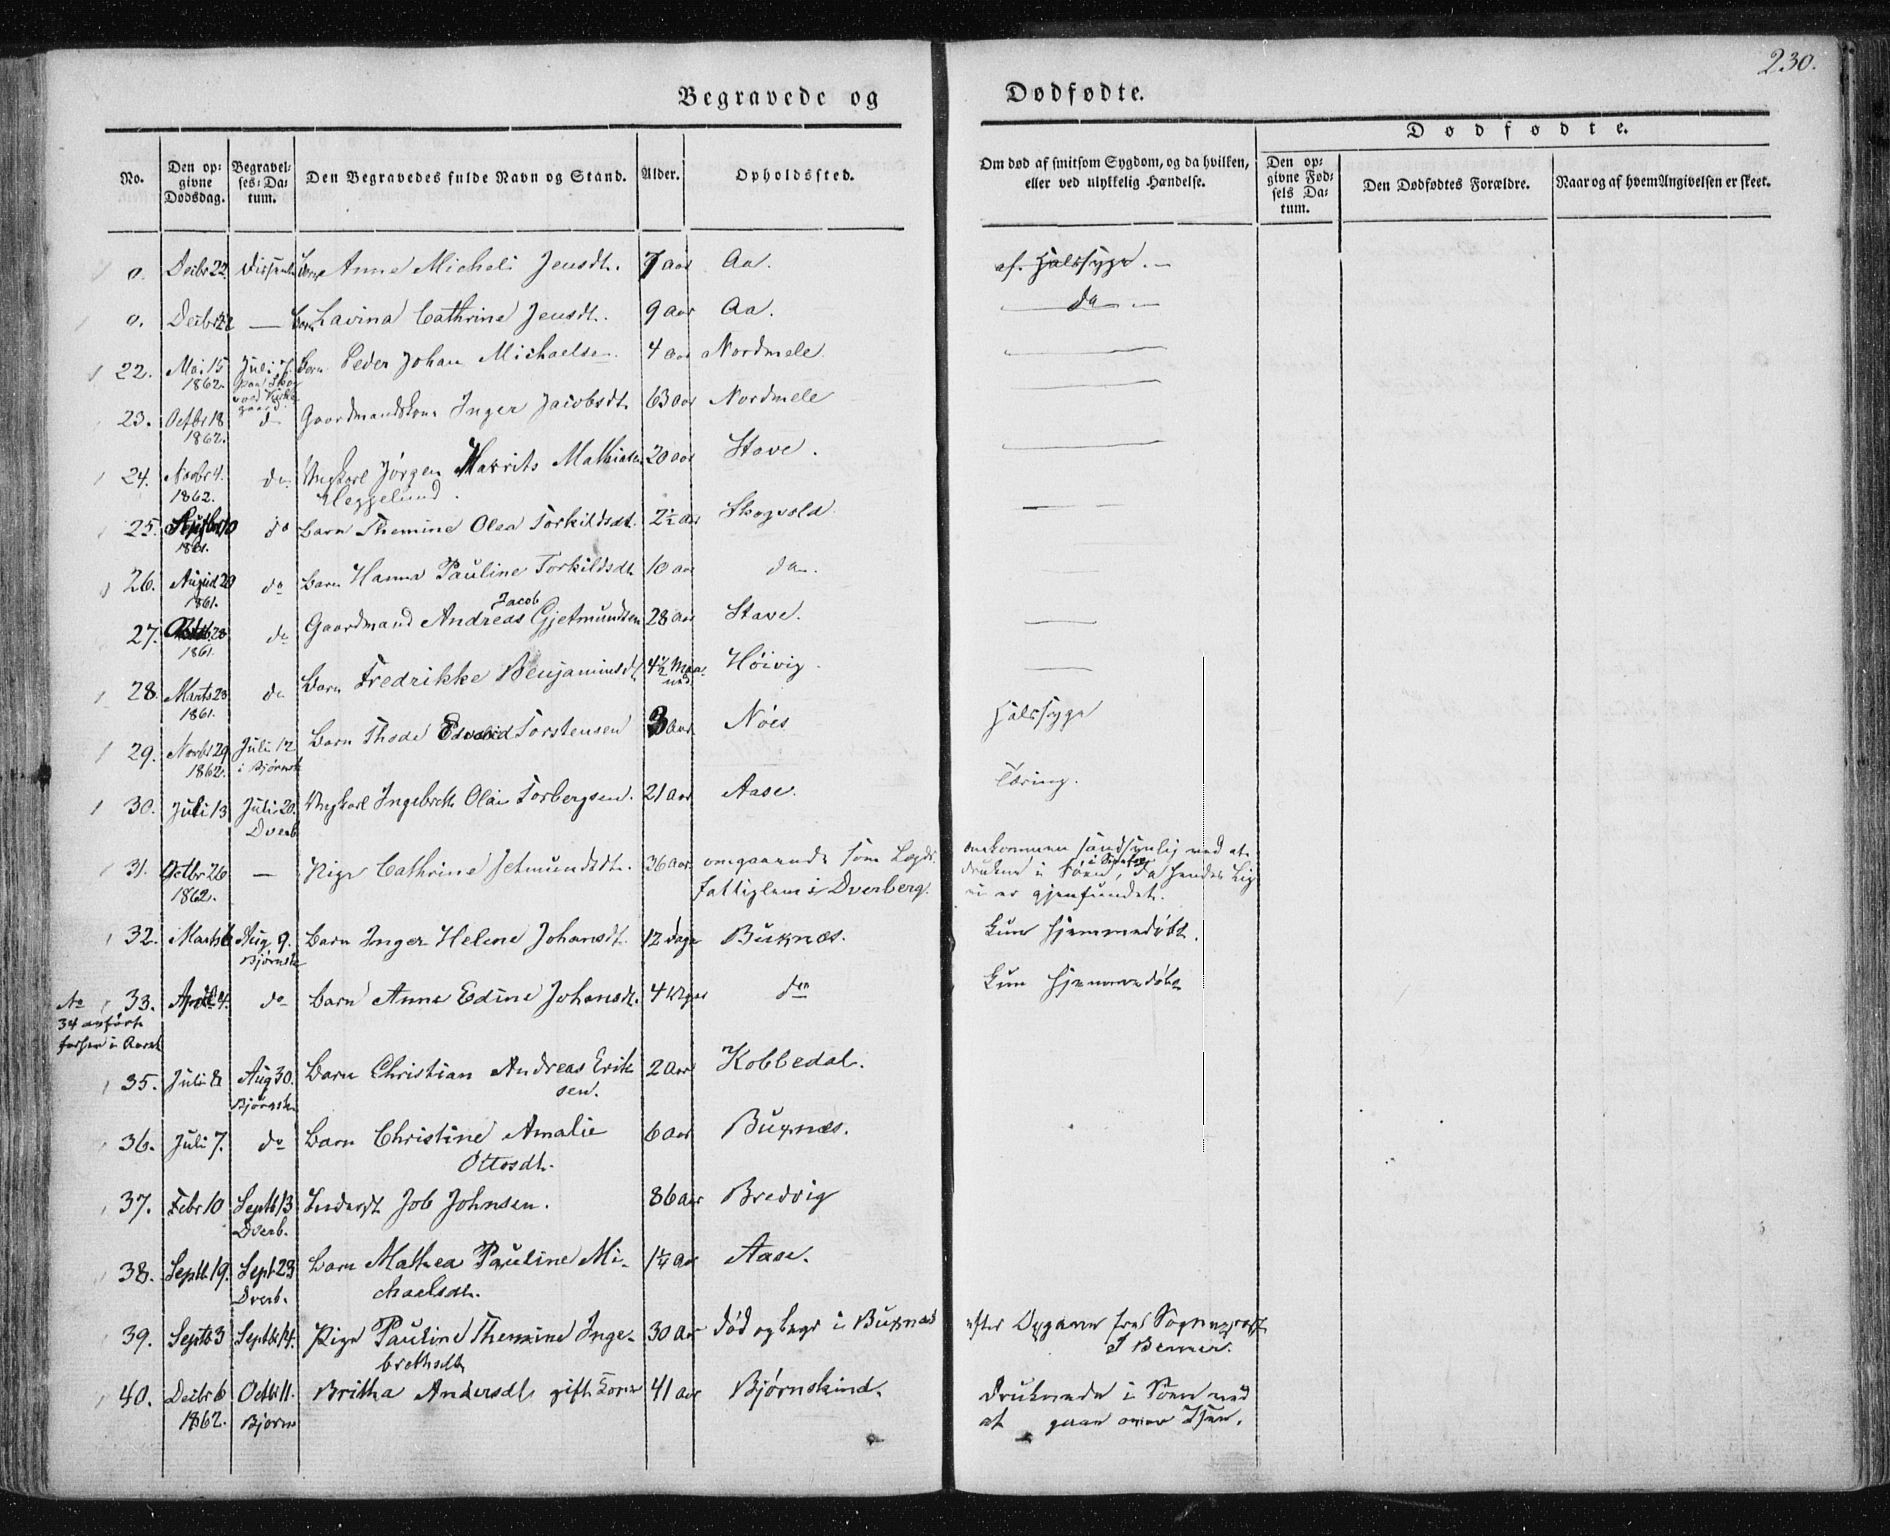 230.
Begravede og Dødfødte.
Dødfødte.
No.
Den op-
givne
Dødsdag.
Begravel-
ses-Da-
tum.
Den Begravedes fulde Navn og Stand.
Alder.
Opholdssted.
Om død af smitsom Sygdom, og da hvilken,
eller ved ulykkelig Hændelse.
Den op-
givne Fød-
sels Da-
tum.
Den Dødfødtes Forældre.
Naar og af hvem Angivelsen er skeet.
0. Decbr 22 Barn Anne Micheli Jensdt. 7 Aar Aa. af Halssyge.
0. Decbr 22 — Barn Lavina Cathrine Jensdt. 9 Aar Aa. do
22. Mai 15 Juli Barn Peder Johan Michaelsen 4 Aar Nordmele
1862.
23. Octbr 18 do Gaardmandskone Inger Jacobsdt. 63 Aar Nordmele
1862.
24. Novbr 4. do Ungkarl Jørgen Marrits Mathiasen 20 Aar Stave.
1862. Heggelund.
25. 10 do Barn Themine Olea Torkildsdt. 2½ Aar Skogvold
1861.
26. August 29 do Barn Hanna Pauline Torkildsdt. 10 Aar do.
1861.
Jacob
27. 28 do Gaardmand Andreas Gjetmundsen 28 Aar Stave.
1861.
28. Marts 23 do Barn Fredrikke Benjaminsdt. 4½ Maa- Høivig.
1861. ned.
29. Novbr 29 Juli 12 Barn Thode Edvard Torstensen 3 Aar Nøis Halssyge
1862. i Bjørnsk
30. Juli 13 Juli 20. Ungkarl Ingebreth Olai Torbergsen. 21 Aar Aase. Tæring.
Dverb.
31. Octbr 26 — Pige Cathrine Jetmundsdt. 36 Aar omgaaende som Lægds- omkommen sandsynlig ved at
1862. fattiglem i Dverberg. drukne i Søen, da hendes Lig
ei er gjenfundet.
32. Marts 6 Aug. 9. Barn Inger Helene Johansdt. 12 Dage Buxnæs. Kun hjemmedøbt.
Bjørnsk
No 33. April 4. do Barn Anne Edine Johansdt. 4 Uger do Kun hjemmedøbt
34 anført
forhen i Aaret
35. Juli 8 Aug 30. Barn Christian Andreas Erik- 2 Aar Kobbedal.
Bjørnsk sen.
36. Juli 7. do Barn Christine Amalie 6 Aar Buxnæs.
Ottosdt.
37. Febr 10 Septb 13 Inderst Job Johnsen. 86 Aar Bredvig
Dverb.
38. Septb 19. Sept 23 Barn Mathea Pauline Mi- 1¼ Aar Aase.
Dverb. chaelsdt.
39. Septb 3 Septb 14. Pige Pauline Themine Inge- 30 Aar død og begr i Buxnæs efter Opgave fra Sognepræst
brethsdt.
40. Decbr 6 Octbr 11. Britha Andersdt. gift Kone 41 Aar Bjørnskind. Druknede i Søen ved
1862. Bjørns at gaae over Isen.